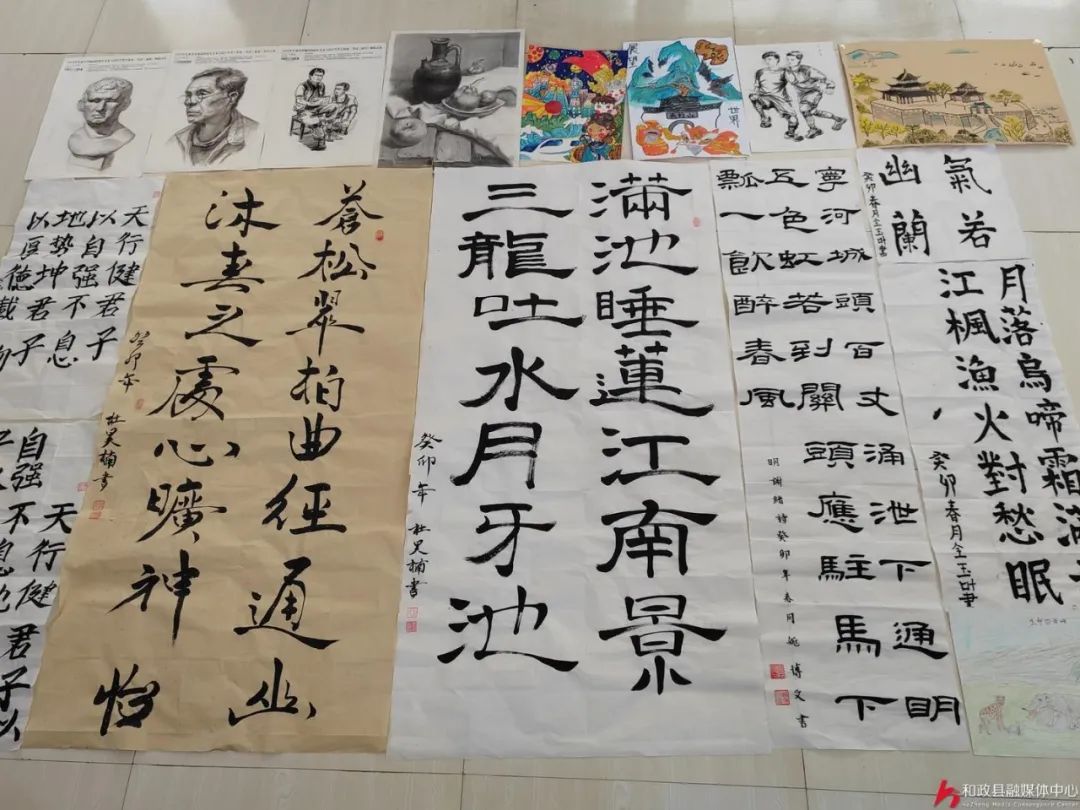 天行健君子
以自强不息
地势坤君子
以厚德載
天行健君子以
自强不息地
蒼松翠柏曲径通幽
沐春之處心曠神怡
癸卯年
滿池睡蓮江南景
三龍吐水月牙池
癸卯年
寧河城頭百丈涌泄下通明
五色虹若到關頭應駐馬下
瓢一飲醉春風
明謝緒詩癸卯年春月姚博文書
氣若
幽蘭
癸卯春月
月落烏啼霜滿
江楓漁火對愁眠
癸卯春月
世界
和政县融媒体中心
HeZheng Media Convergence Center